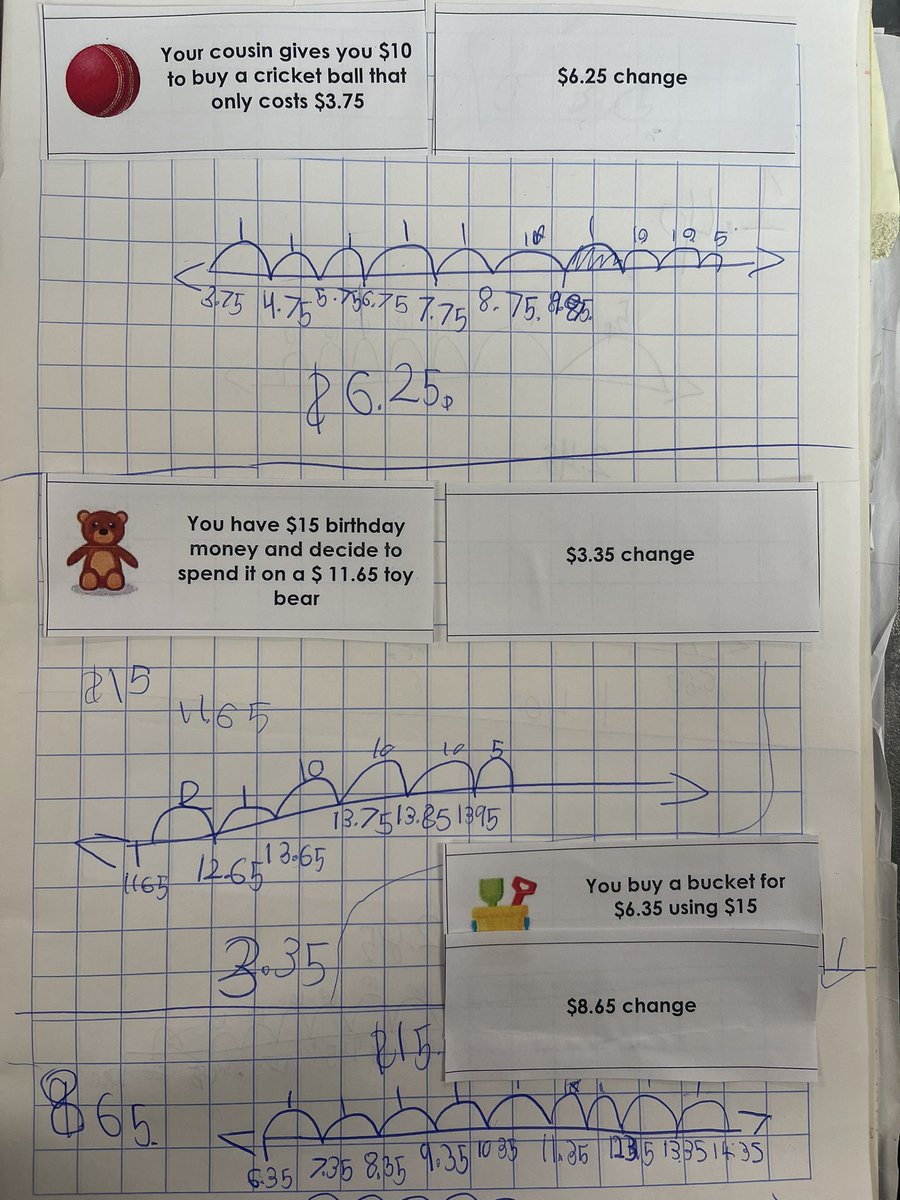 Your cousin gives you $10
to buy a cricket ball that
only costs $3.75
$6.25 change
1 1 1 1 1 10 1 10 10 5
3.75 4.75 5.75 6.75 7.75 8.75.
$6.25.
You have $15 birthday
money and decide to
spend it on a $ 11.65 toy
bear
$3.35 change
$15
11.65
1 10 10 10 5
13.75 13.85 1395
1165 12.65 13.65
3.35
You buy a bucket for
$6.35 using $15
$8.65 change
$15.
865.
1 1 1 1 1 1 1 1
6.35 7.35 8.35 9.35 10.35 11.35 13.35 14.35